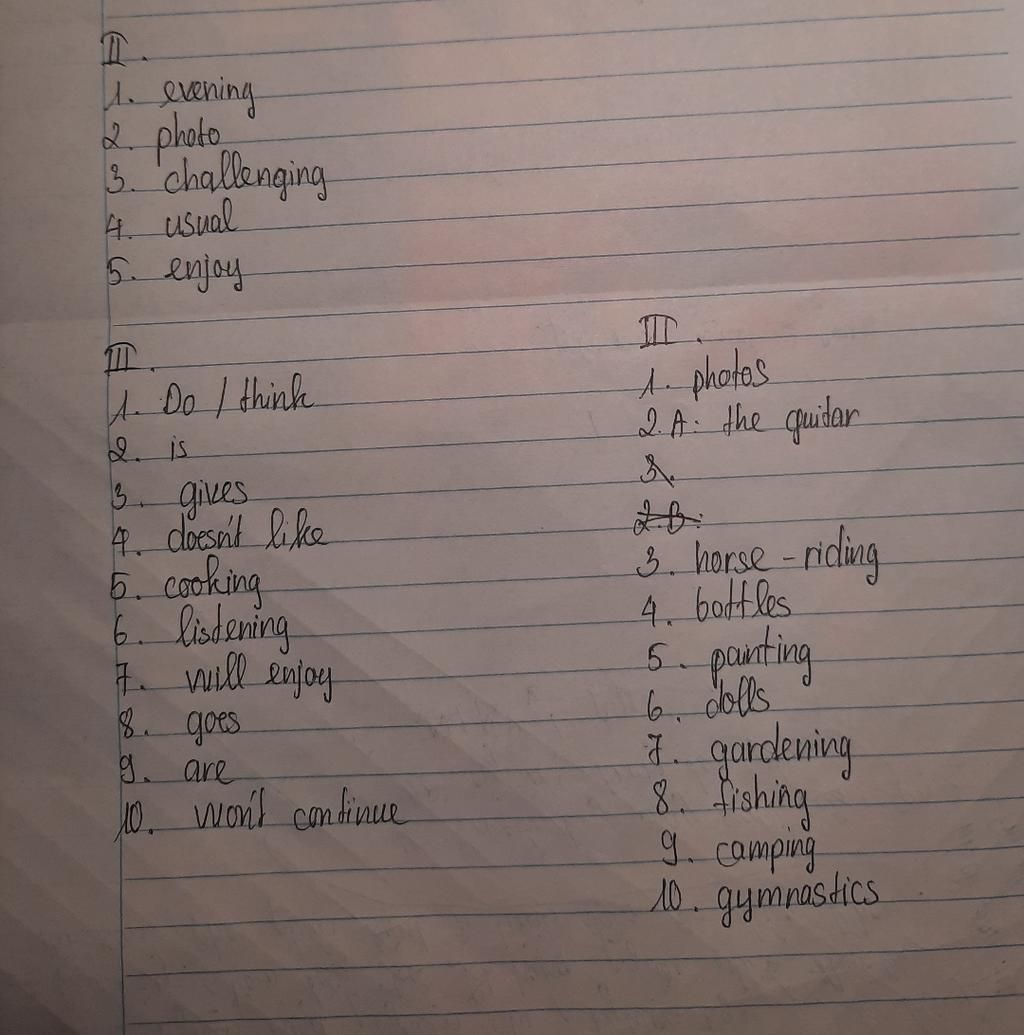 II.
1. evening
2. photo
3. challenging
4. usual
5. enjoy
III.
1. Do / think
2. is
3. gives
4. doesn't like
5. cooking
6. listening
7. will enjoy
8. goes
9. are
10. won't continue
III.
1. photos
2. A: the guitar
3.
2. B:
3. horse - riding
4. bottles
5. painting
6. dolls
7. gardening
8. fishing
9. camping
10. gymnastics